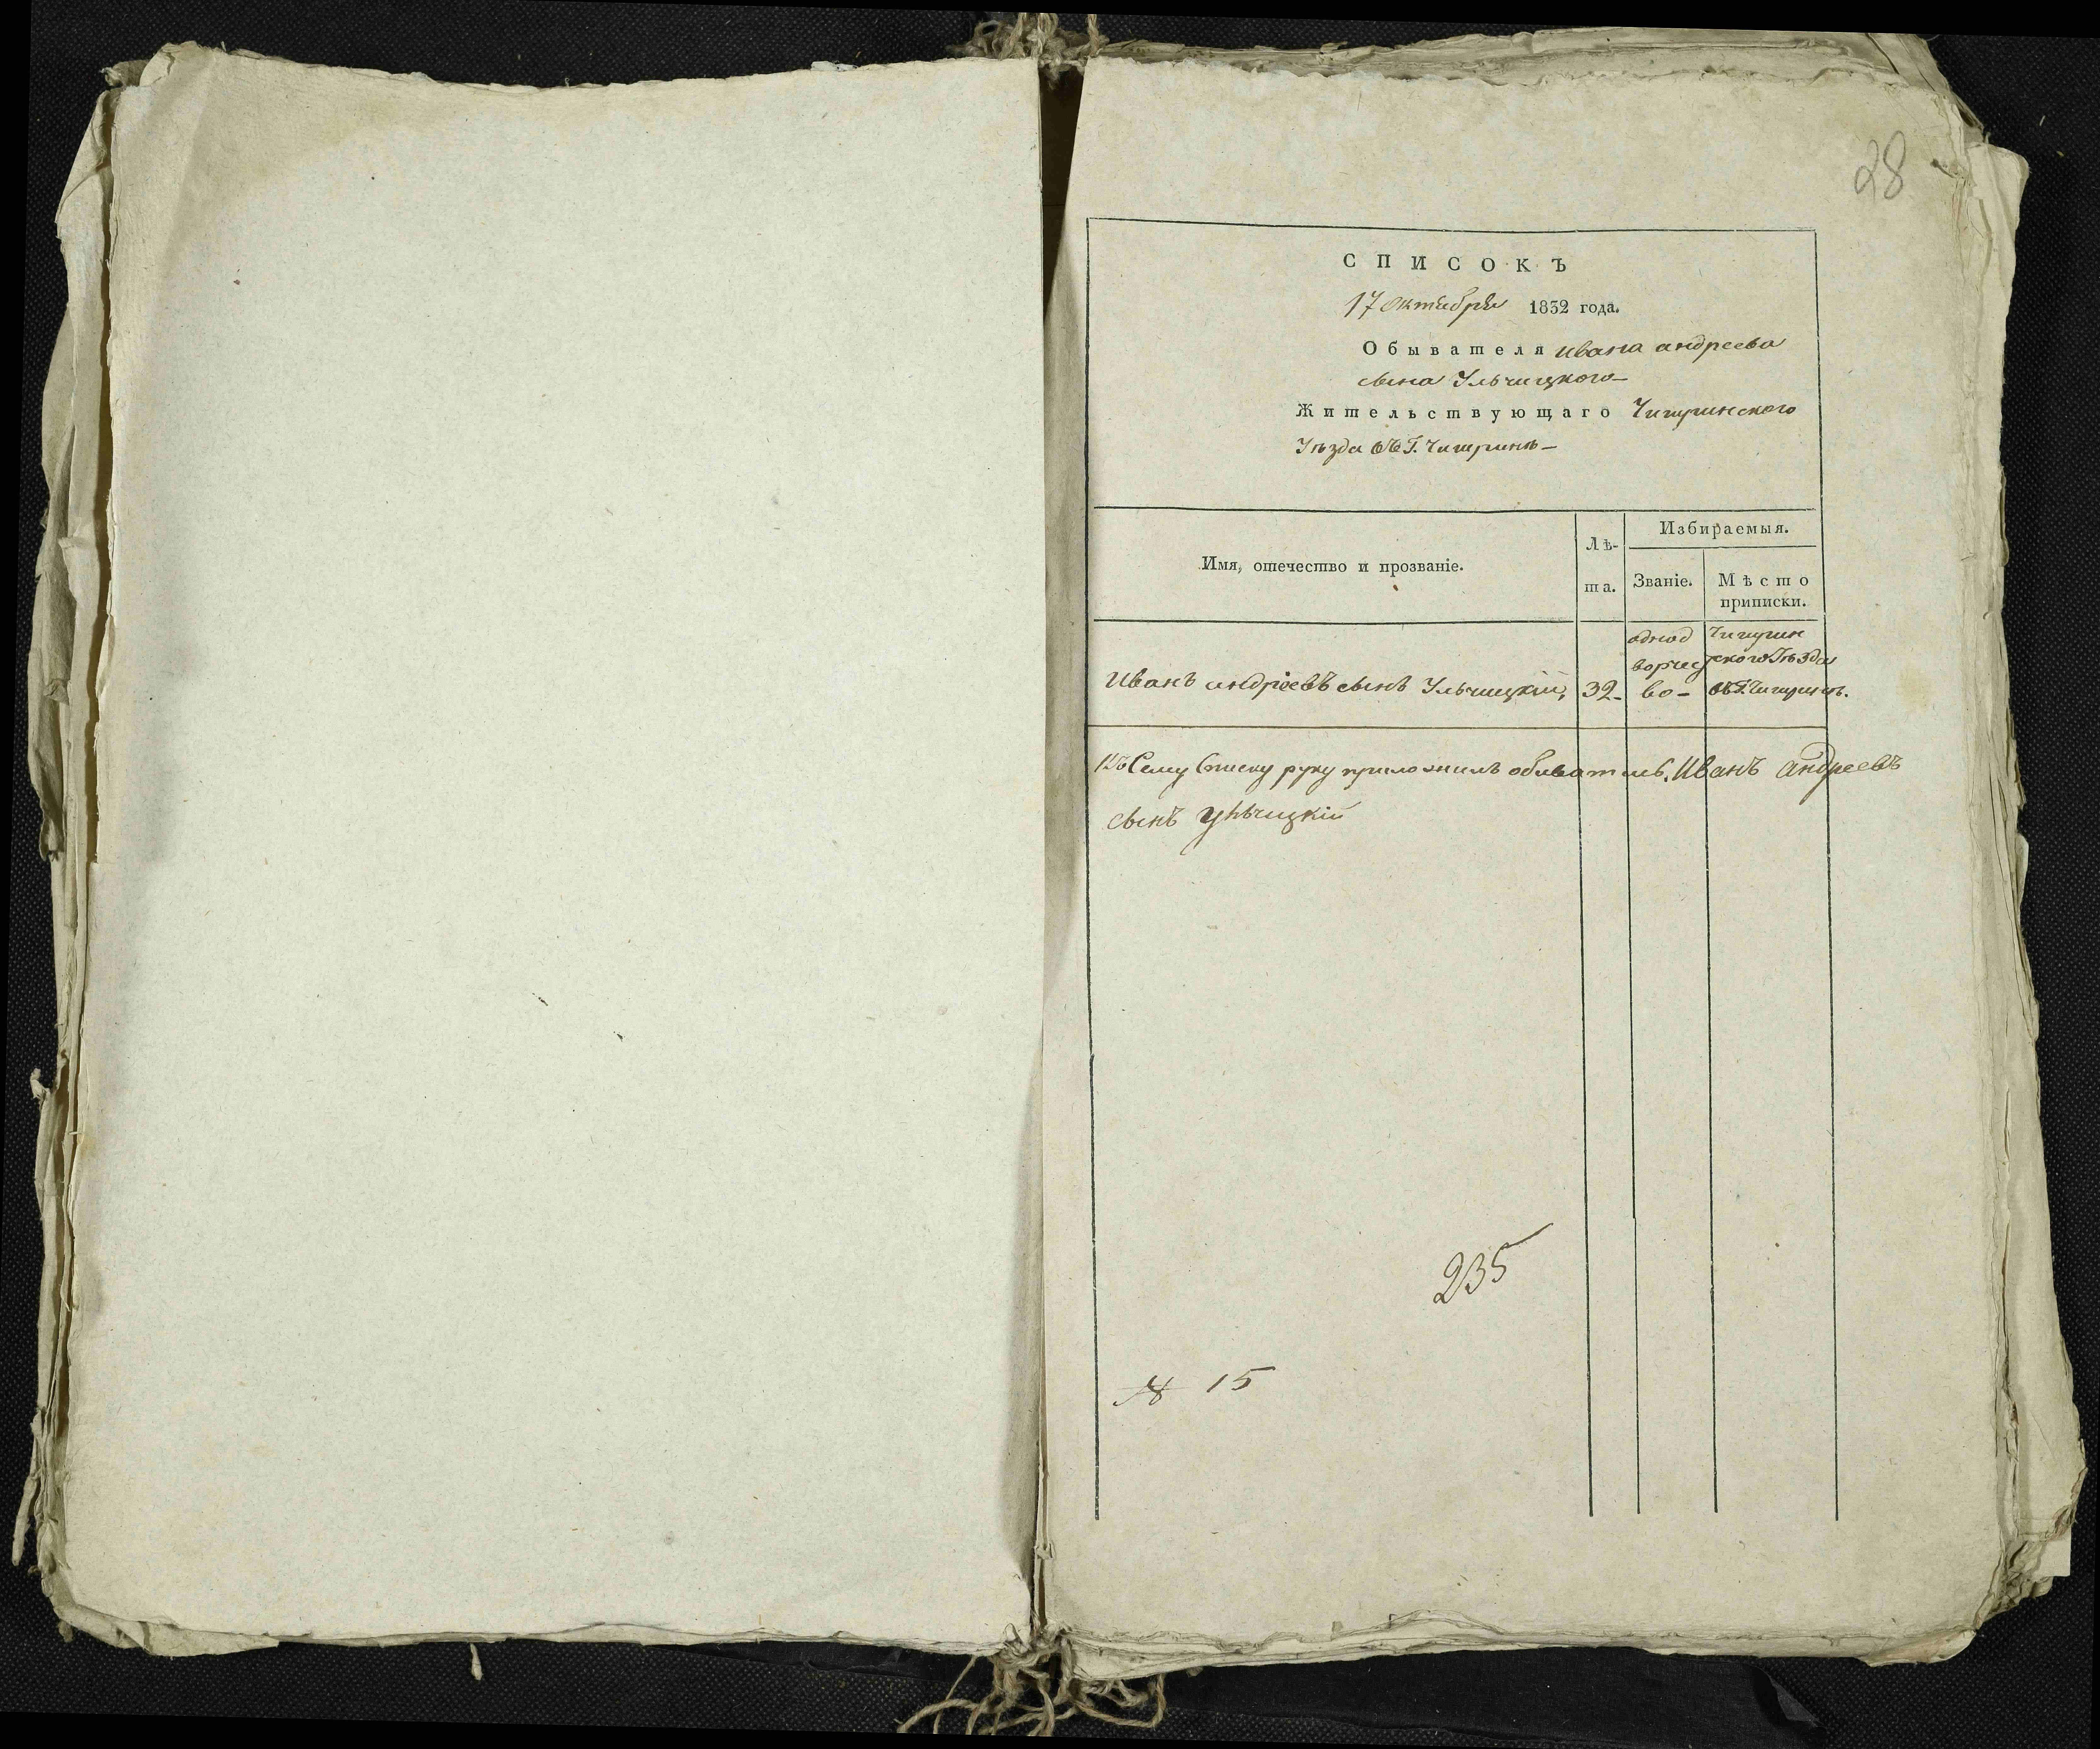 28
СПИСОКЪ
17 октября 1832 года.
Обывателя Ивана андреева
сына Ульчицкого—
Жительствующаго Чигиринского
Уѣзда въ Г. Чигиринѣ—
Имя, отечество и прозваніе.
Лѣ-
та.
Избираемыя.
Званіе.
Мѣсто
приписки.
Иванъ андреевъ сынъ Ульчицкій,
32-
однод
ворчес
во-
Чигирин
ского Уѣзда
въ Г. Чигиринѣ.
Къ Сему Списку руку приложилъ обыватель Иванъ андреевъ
сынъ Ульчицкій
235
№ 15